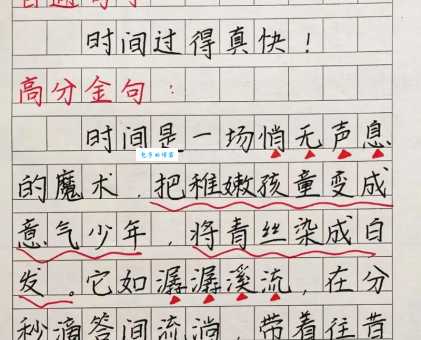 普通句子
时间过得真快！
高分金句：
时间是一场悄无声息
的魔术，把稚嫩孩童变成
意气少年，将青丝染成白
发。它如潺潺溪流，在分
秒滴答间流淌，带着往昔